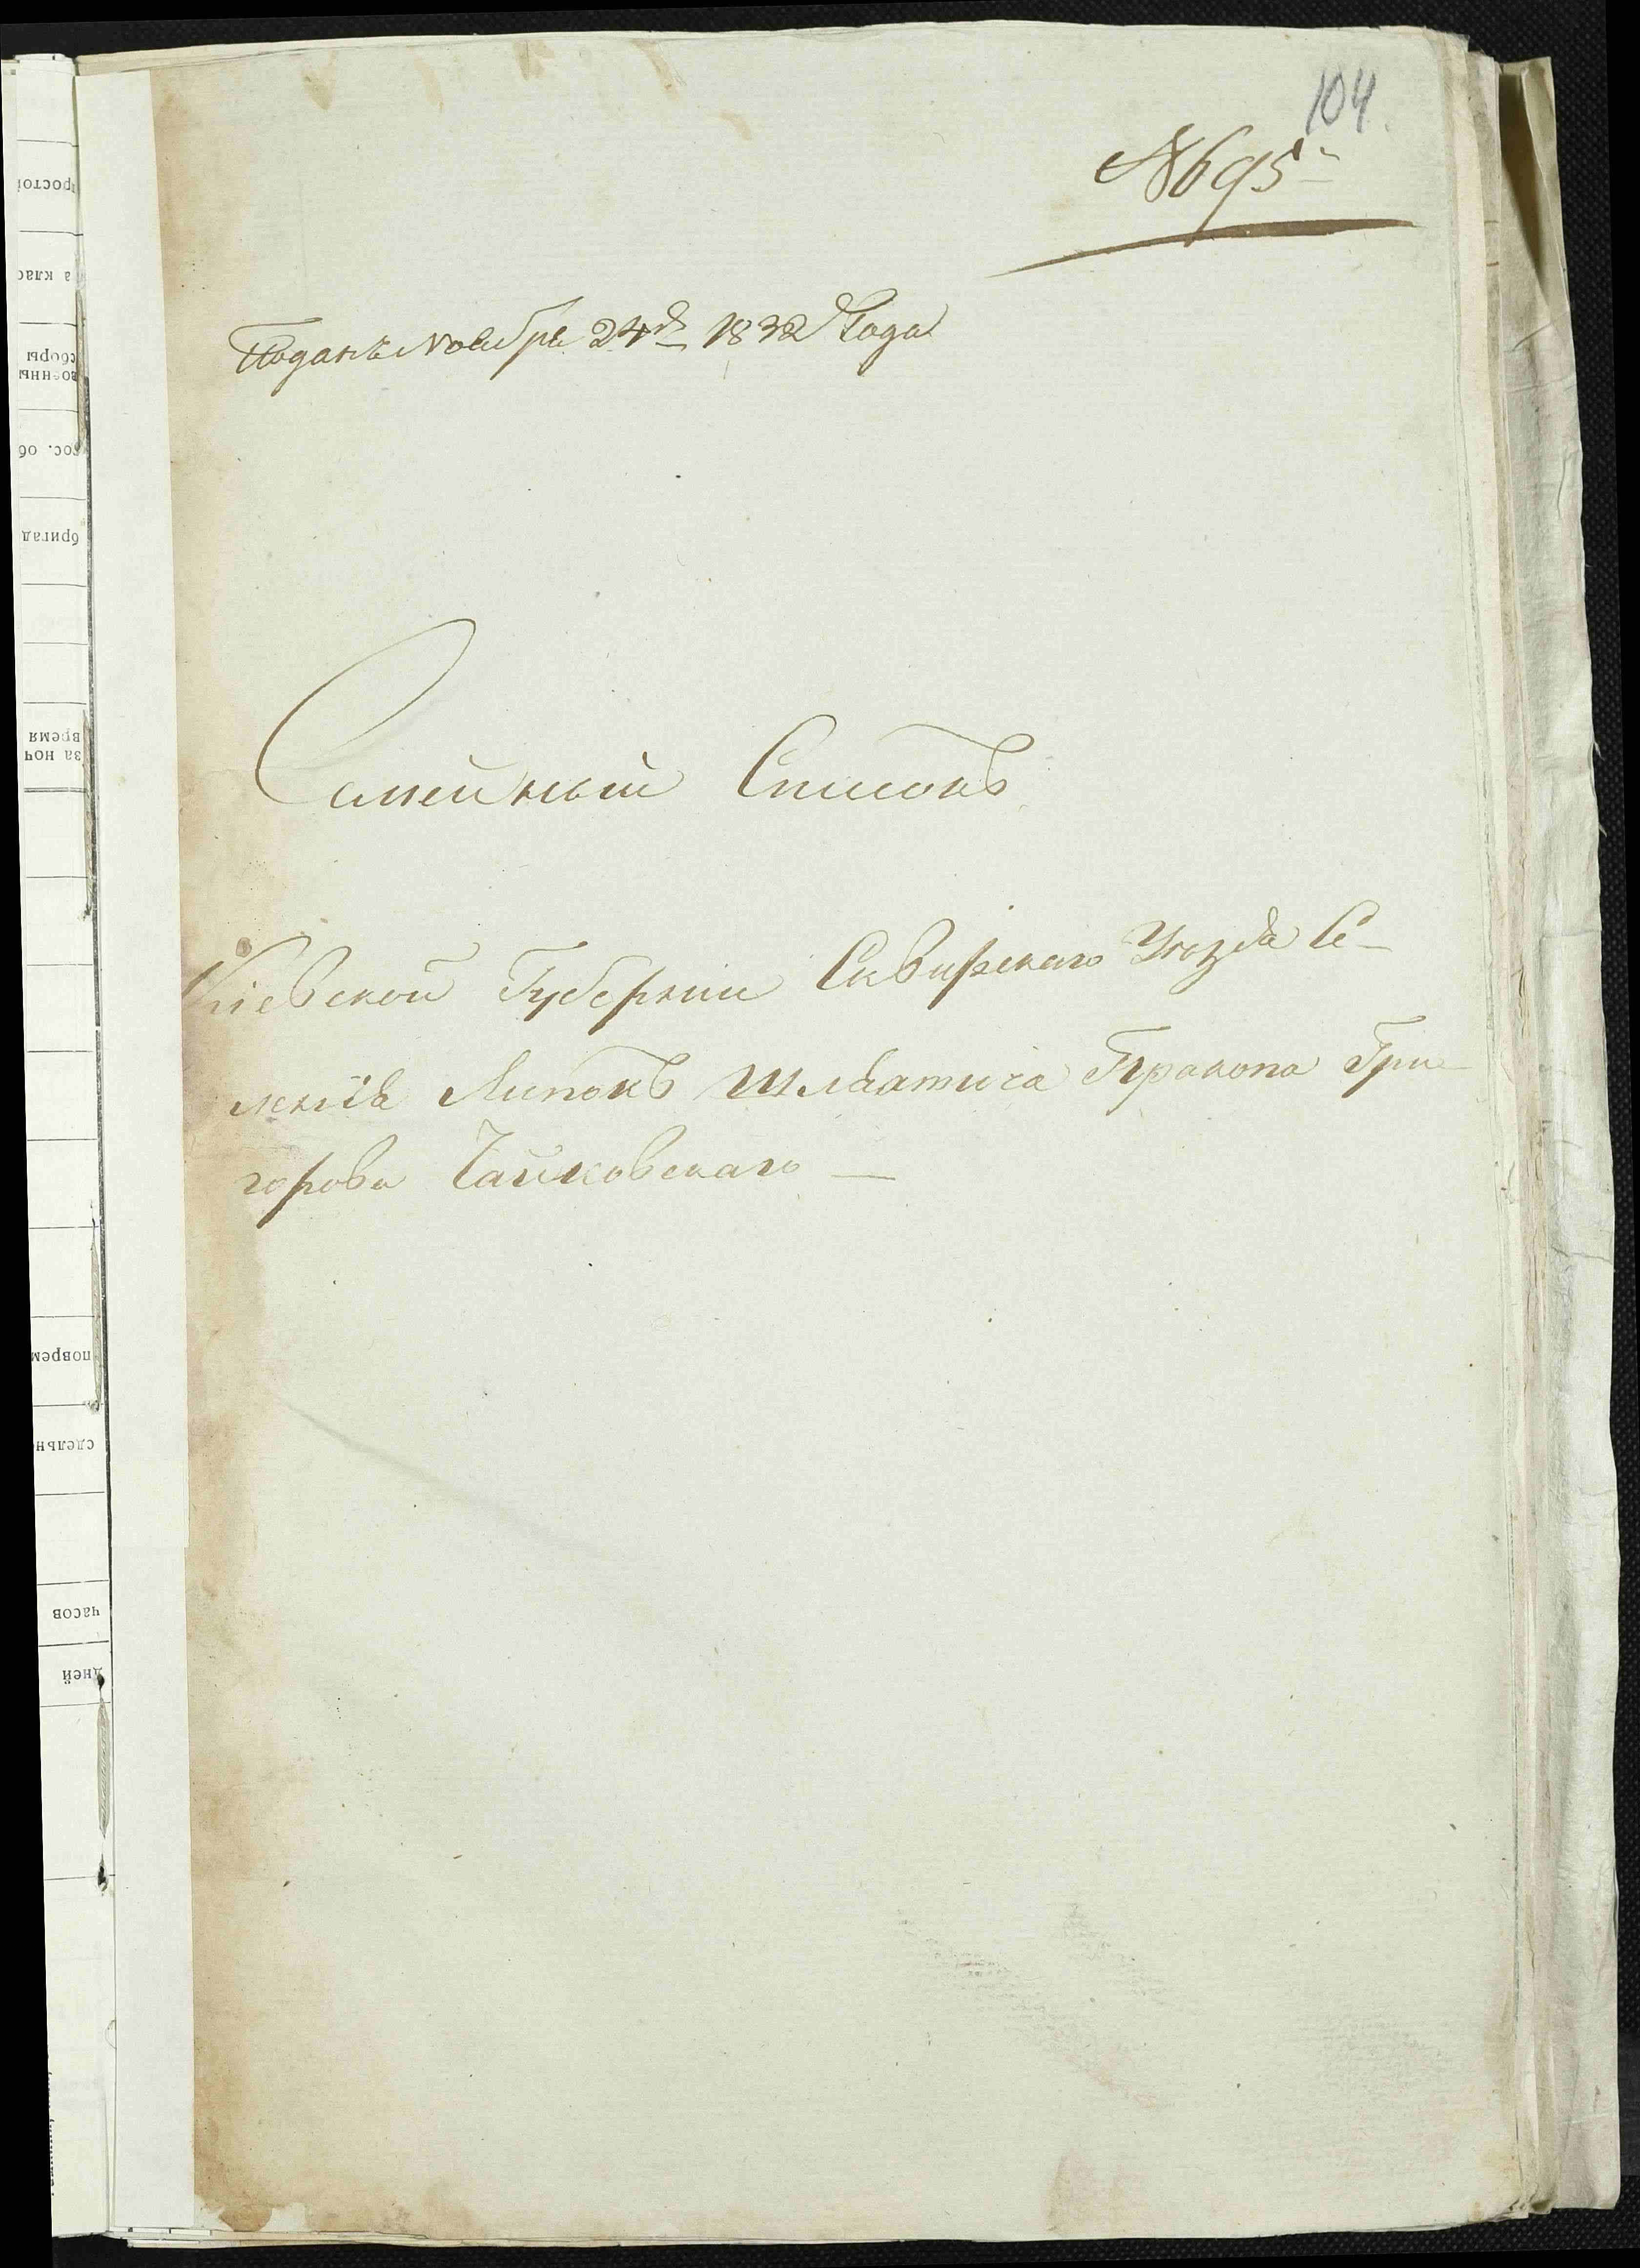 104
№ 695
Поданъ Ноября 24го 1832 Года
Семейный Списокъ
Кіевской Губерніи Сквирскаго Уѣзда Се-
ленія Липокъ Шляхтича Пракопа Гри-
горова Чайковскаго —
простой
а клас
сборы
военны
гос. об
бригад
время
за ноч
поврем
сдельн
часов
дней